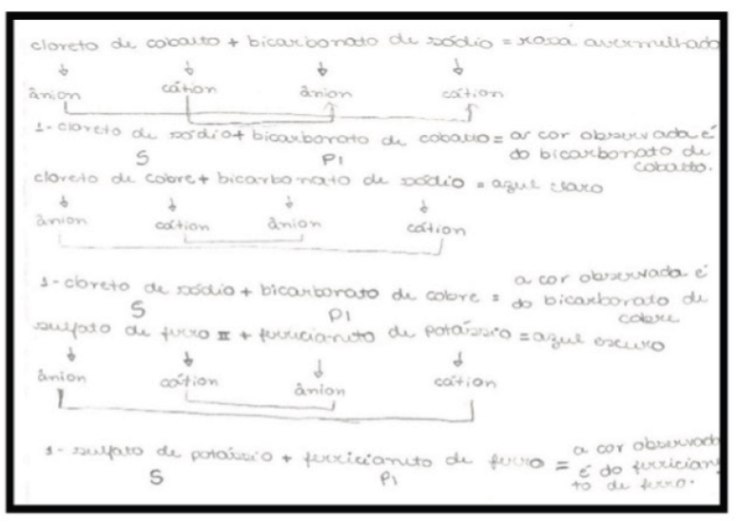 cloreto de cobalto + bicarbonato de sódio = rosa avermelhado
ânion cátion ânion cátion
1- cloreto de sódio + bicarbonato de cobalto = a cor observada é
S PI do bicarbonato de
cobalto.
cloreto de cobre + bicarbonato de sódio = azul claro
ânion cátion ânion cátion
1- cloreto de sódio + bicarbonato de cobre = a cor observada é
do bicarbonato de
S PI cobre.
sulfato de ferro II + ferricianeto de potássio = azul escuro
ânion cátion ânion cátion
1- sulfato de potássio + ferricianeto de ferro = a cor observad
é do ferrician
S PI to de ferro.